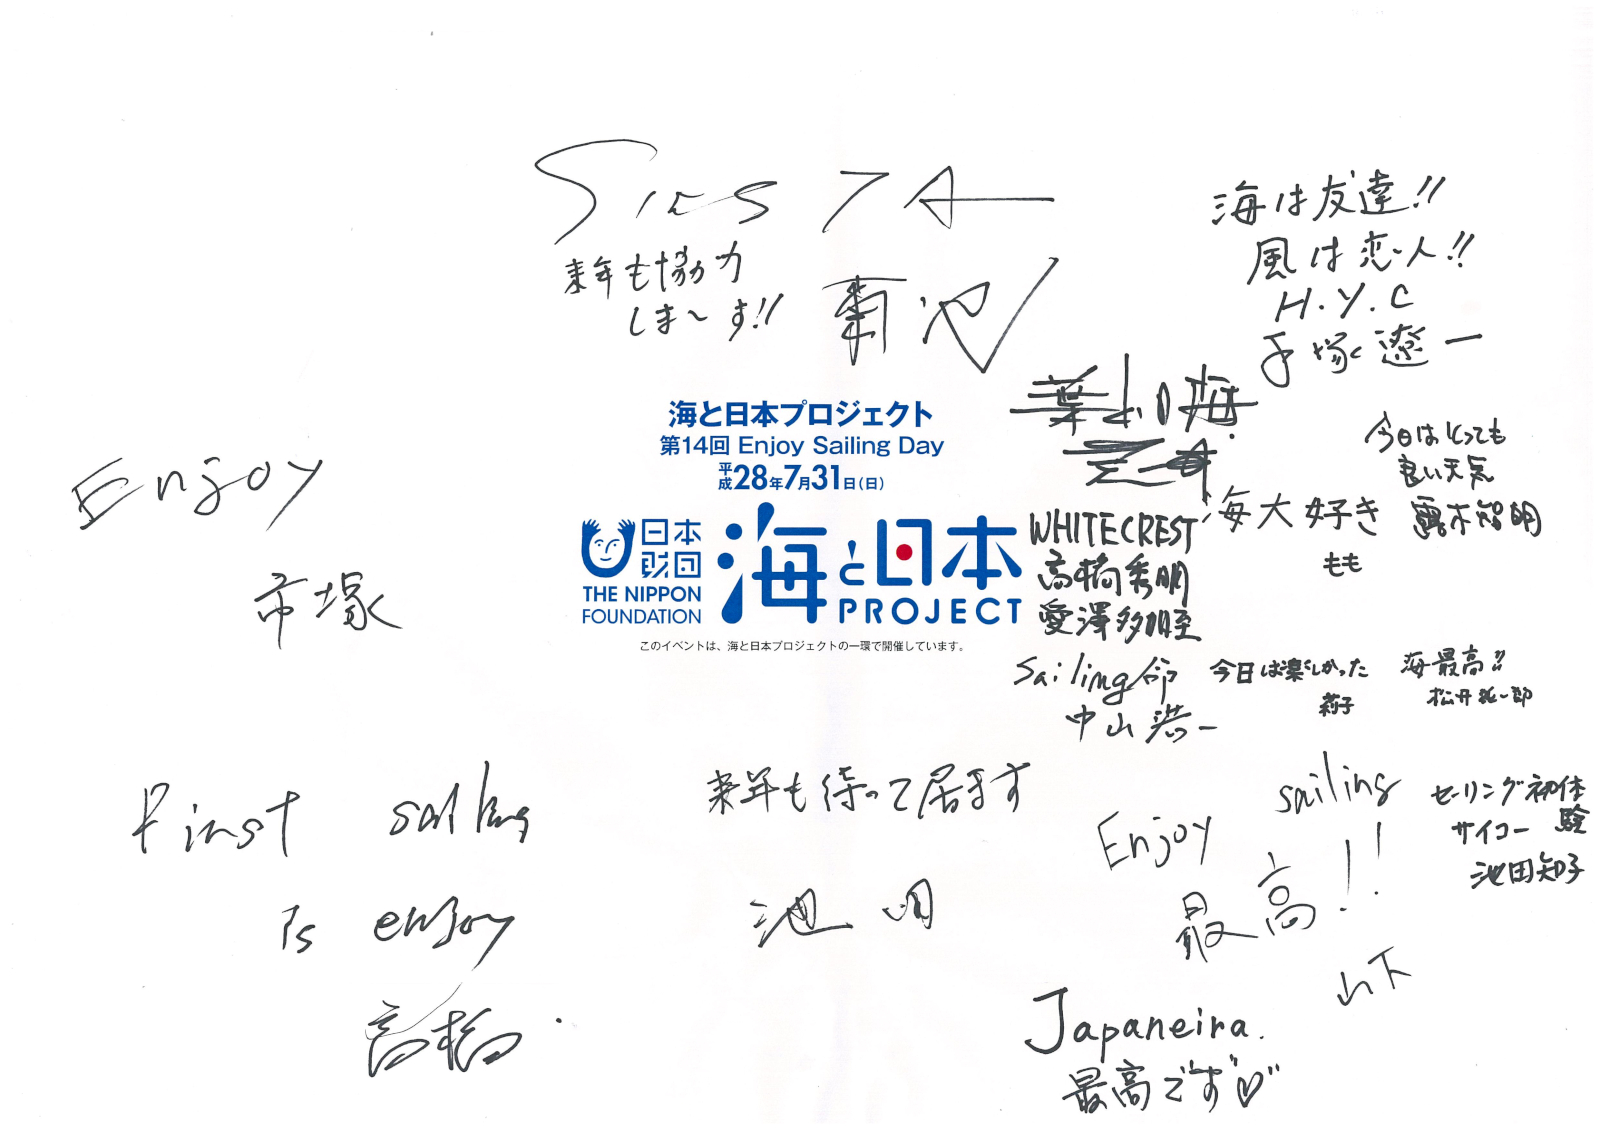 SiesTA
来年も協力
しま〜す!!
菊池
海は友達!!
風は恋人!!
H.Y.C
手塚遼一
海と日本プロジェクト
第14回 Enjoy Sailing Day
平成28年7月31日(日)
日本財団
THE NIPPON
FOUNDATION
海と日本
PROJECT
このイベントは、海と日本プロジェクトの一環で開催しています。
Enjoy
市塚
今日はとっても
良い天気
露木智明
海大好き
もも
WHITECREST
高橋秀明
愛澤多加至
Sailing命
中山浩一
今日は楽しかった
莉子
海最高!!
First sailing
is enjoy
高橋
来年も待って居ます
池田
Enjoy sailing
最高!!
山下
セーリング初体験
サイコー
池田知子
Japaneira.
最高です♡